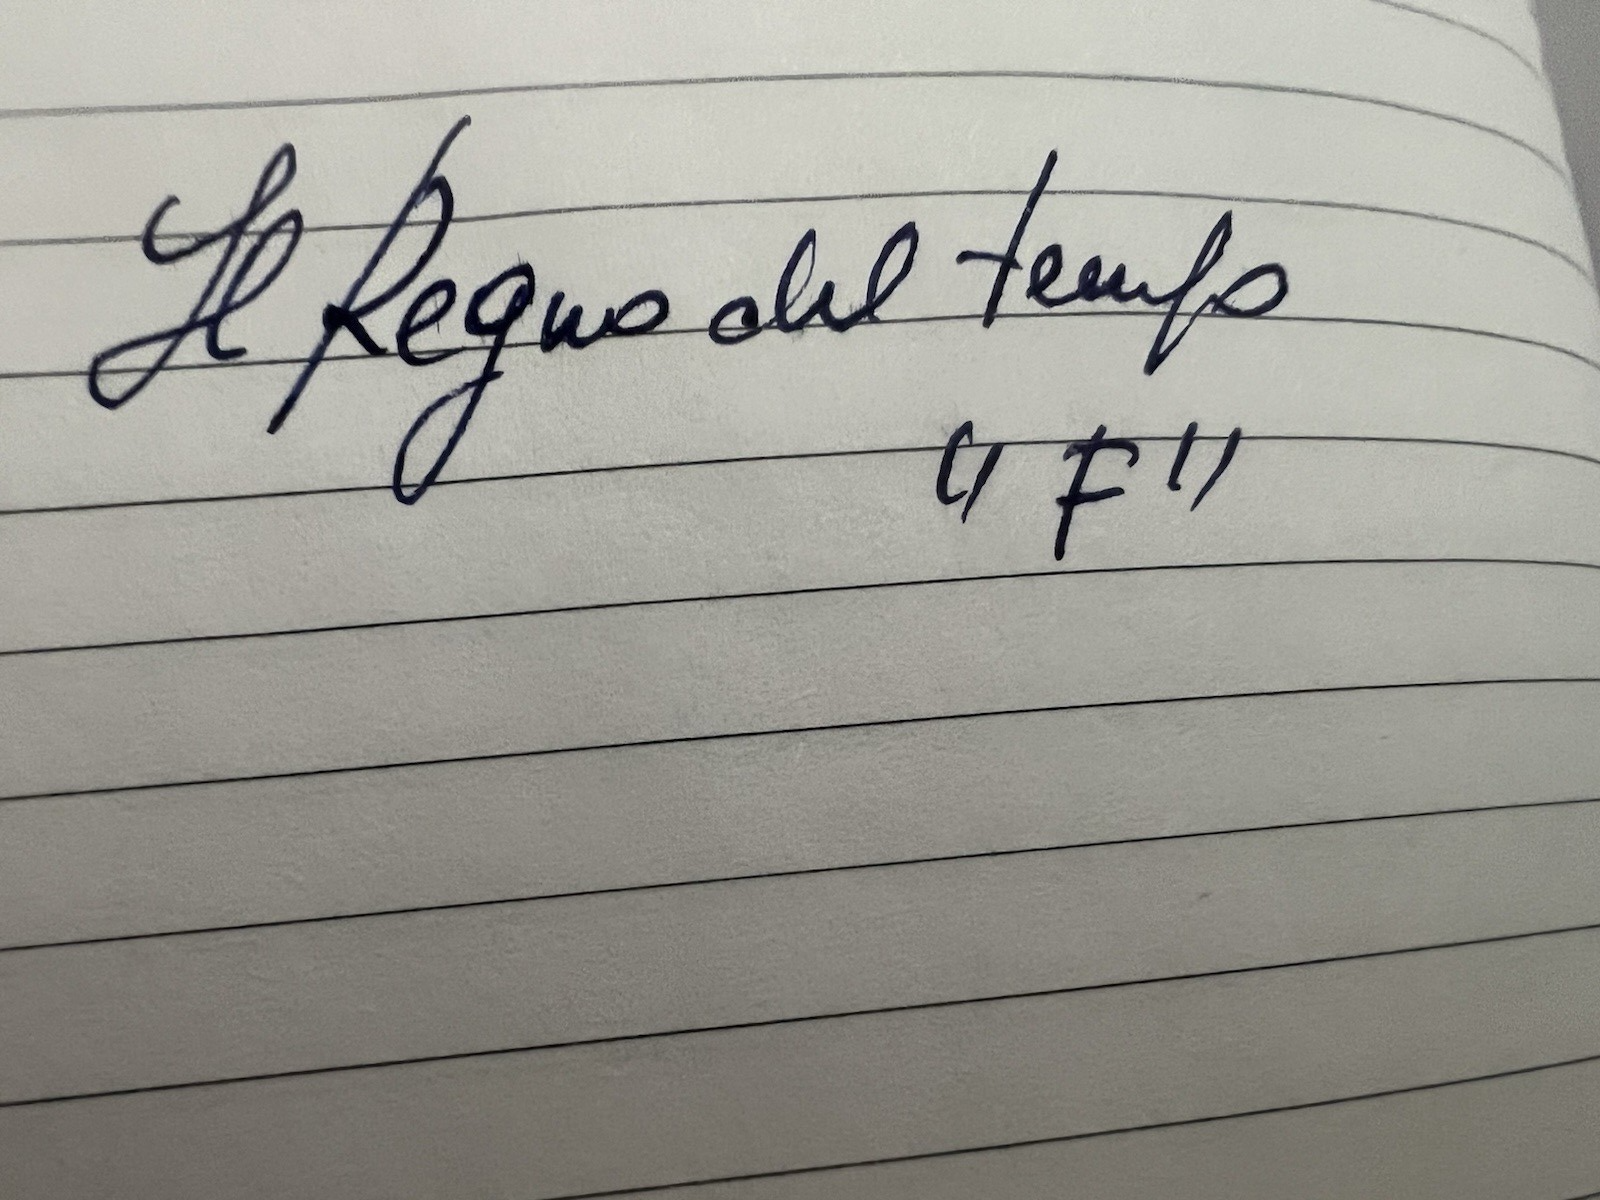 Il Regno del tempo
"F"